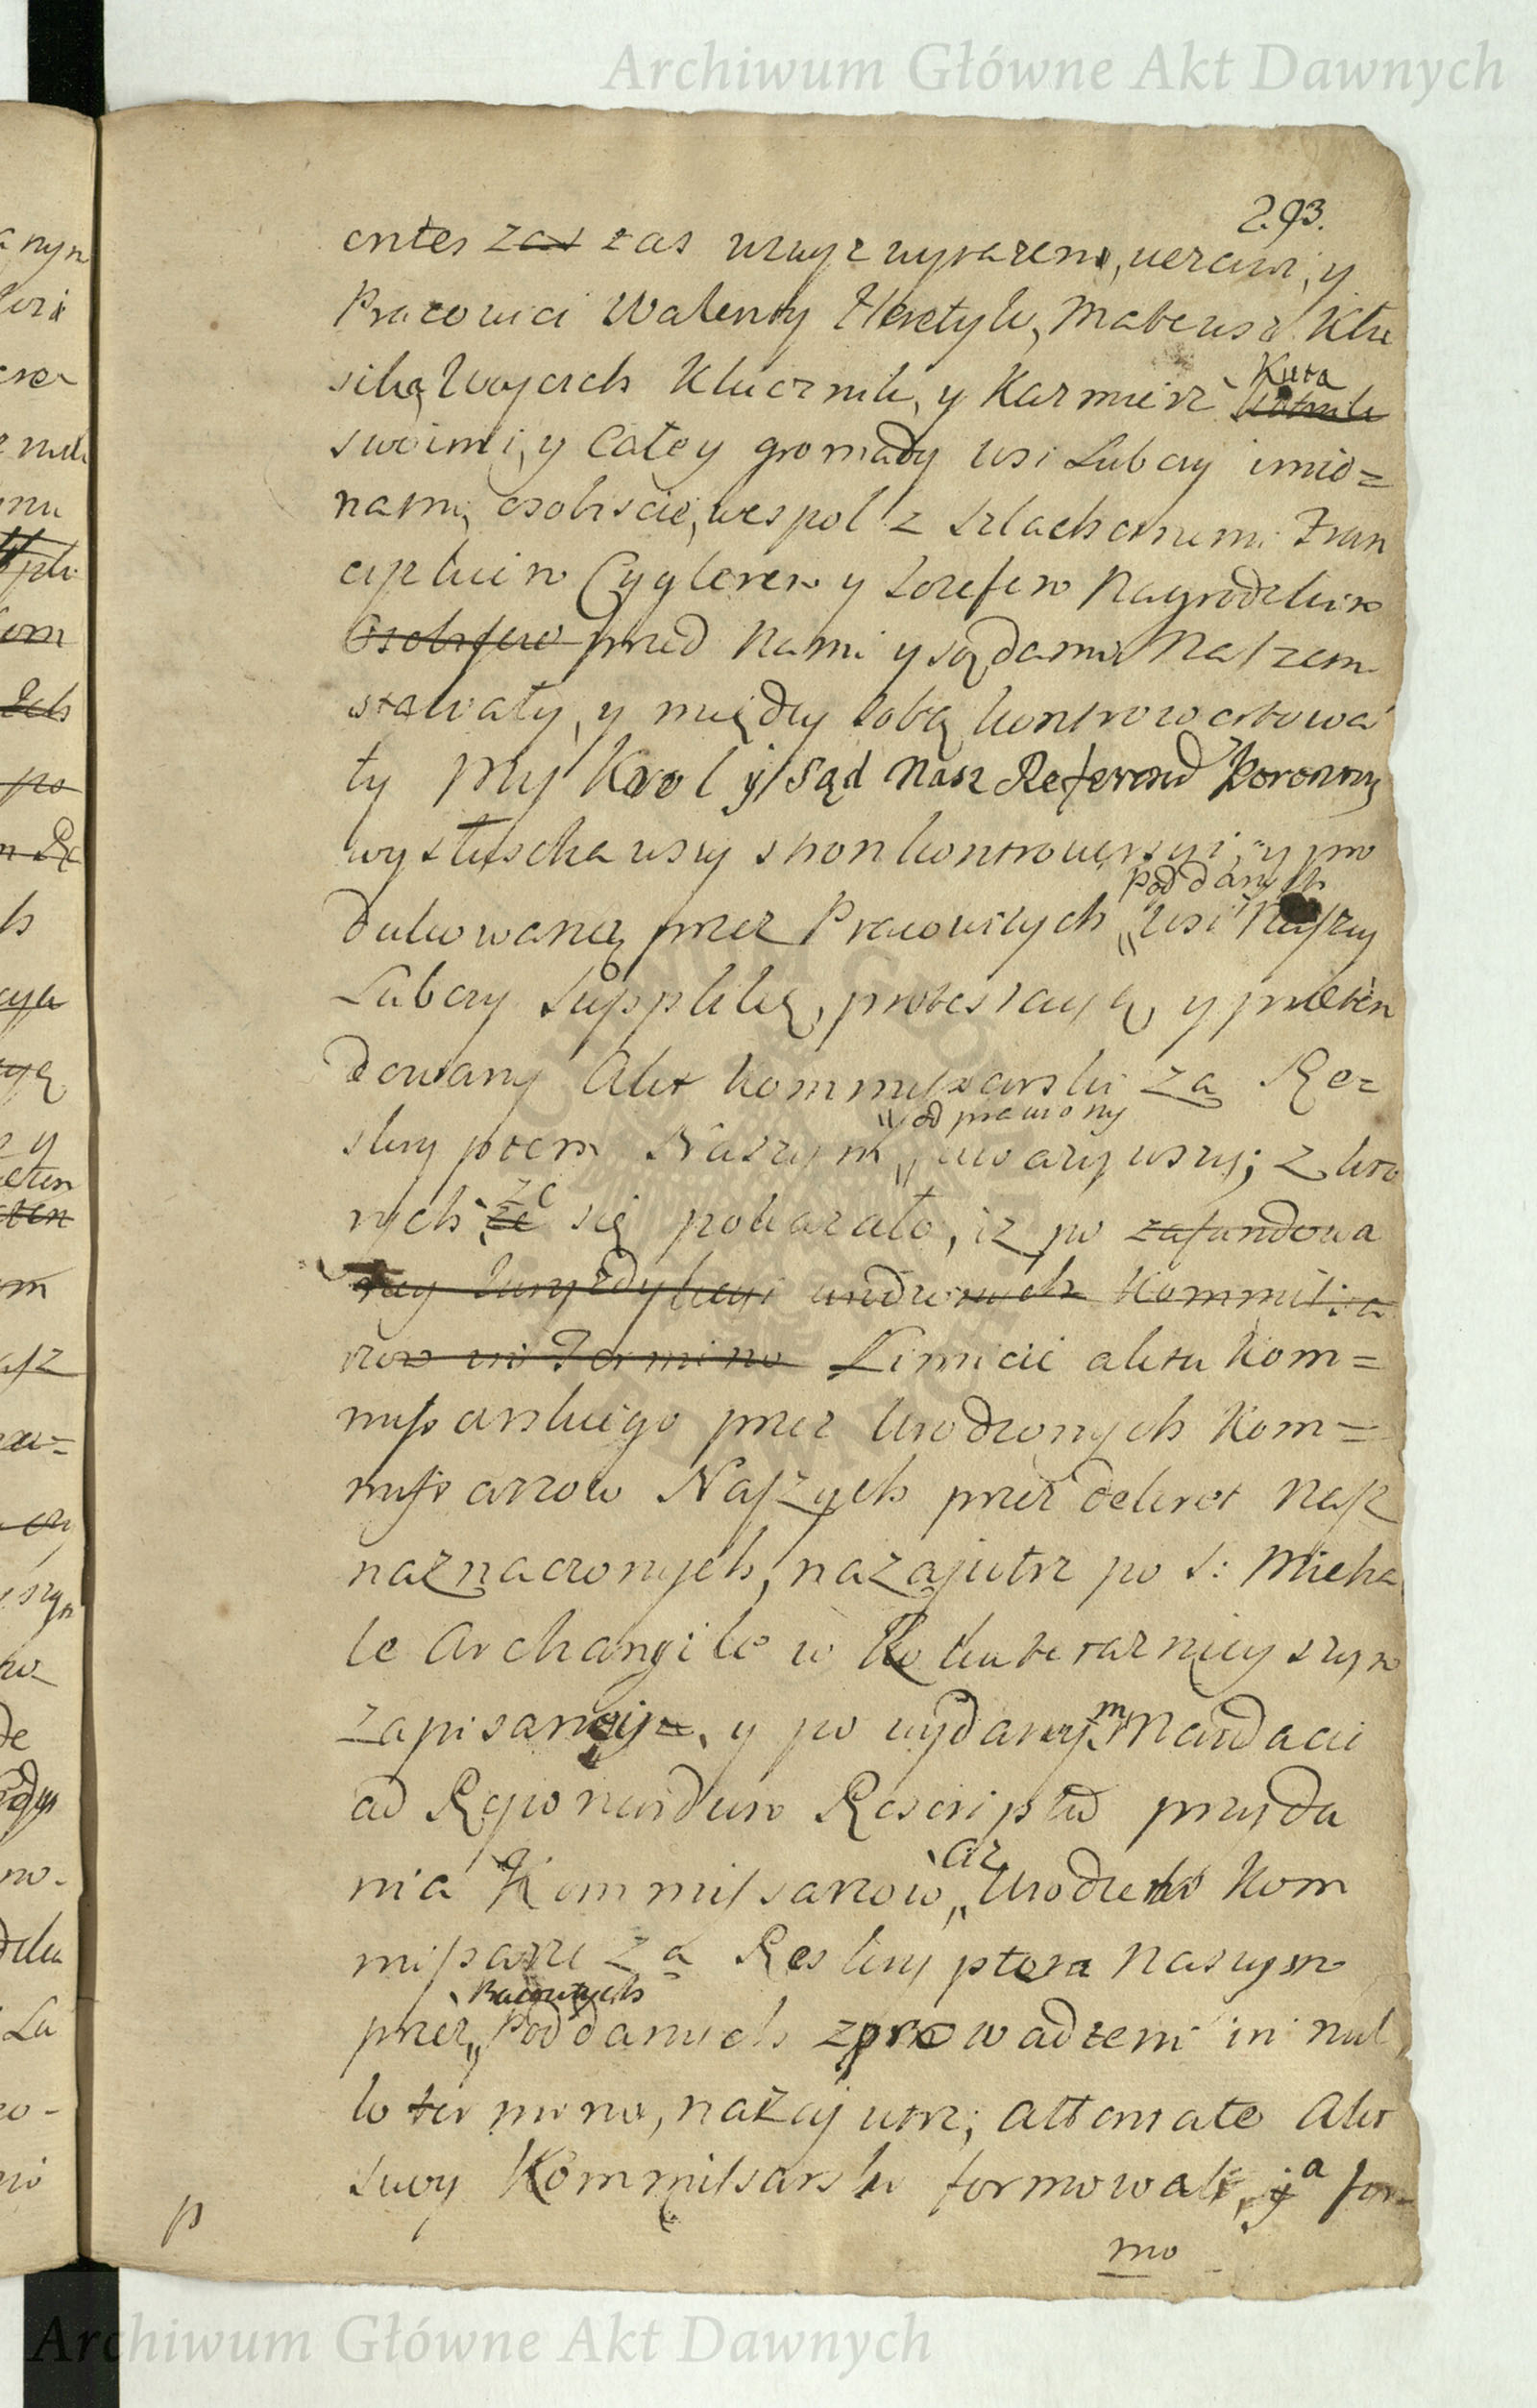 Archiwum Główne Akt Dawnych
293.
entes zas zas wzwyz wyrazeni, uczciwi, y
Pracowici Walenty Heretyk, Mateusz Klu
sik, Woyciech Klucznik, y Kazmierz Kuta
swoimi, y Całey gromady wsi Lubczy imio=
nami, osobiscie, wespol z Szlachetnemi Fran
ciszkiem Cyglerem y Jozefem Nagrodzkim
Osobiscie przed Nami y sądami Naszemi
stawały, y między sobą kontrowertowa
ły My Krol y Sąd Nasz Referend Koronny
wysłuchawszy stron kontrowersyi, y pro
dukowaną przez Pracowitych Poddanych wsi Naszey
Lubczy Supplikę, protestacyą, y preten
dowany Akt kommissarski za Re=
skryptem Naszym odprawiony zważywszy; z kto
rych ze się pokazało, iz po zafundowa
ney Juryzdykcyi urodzonych Kommissa
rzow in Termino Limicie aktu Kom=
missarskiego przez Urodzonych Kom=
missarzow Naszych przez dekret Nasz
naznaczonych, nazajutrz po S: Micha
le Archangile w
zapisaney, y po wydanym Mandacie
ad Reponendum Rescriptu przyda
nia Kommissarzow, az Urodzeni Kom
missarze za Reskryptem Naszym
przez Pracowitych Poddanych zprowadzeni in nul
lo termino, nazajutrz, attentate Akt
swoy Kommissarski formowali, a for=
mo
p
Archiwum Główne Akt Dawnych